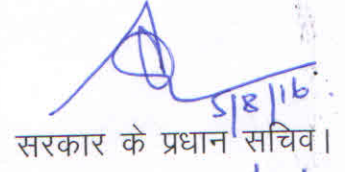 5/8/16
सरकार के प्रधान सचिव।